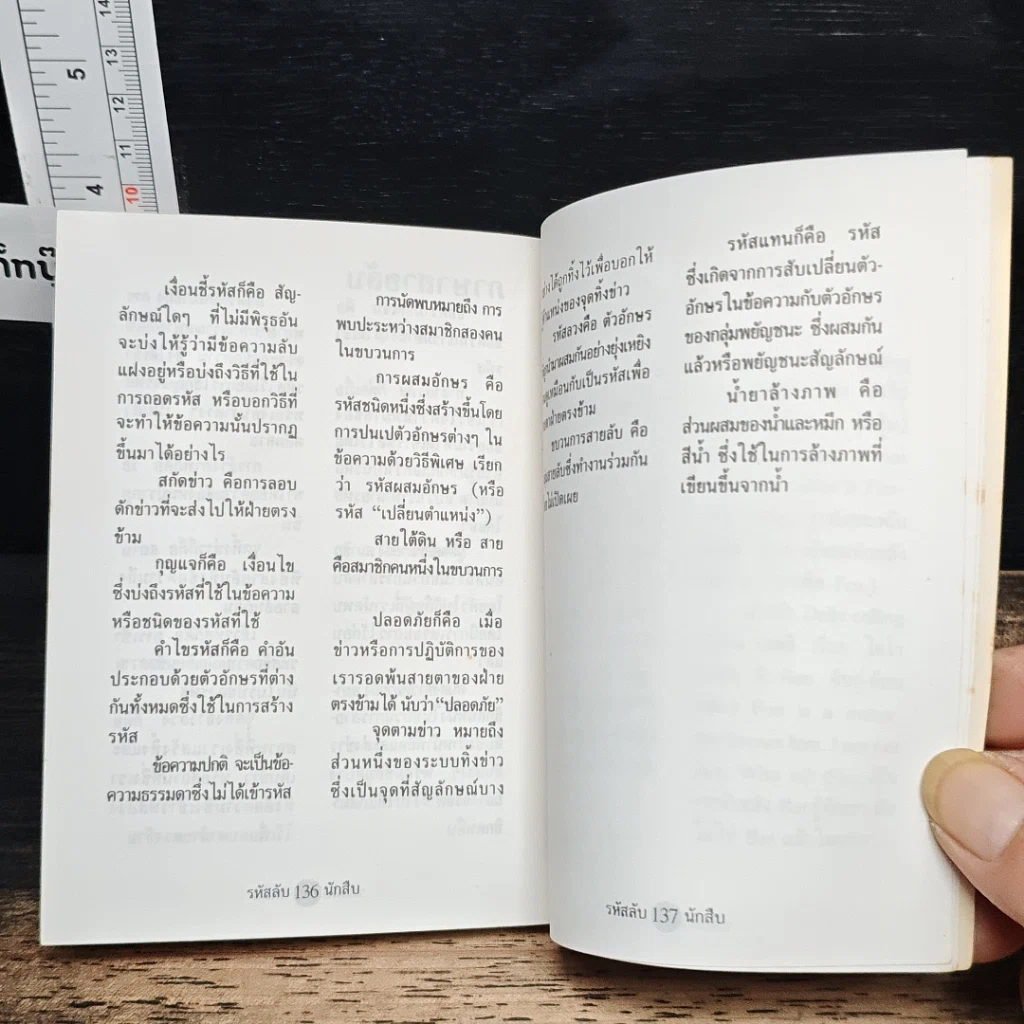 5
4
14
13
12
11
10
เงื่อนชี้รหัสก็คือ สัญ-
ลักษณ์ใดๆ ที่ไม่มีพิรุธอัน
จะบ่งให้รู้ว่ามีข้อความลับ
แฝงอยู่หรือบ่งถึงวิธีที่ใช้ใน
การถอดรหัส หรือบอกวิธีที่
จะทำให้ข้อความนั้นปรากฏ
ขึ้นมาได้อย่างไร
สกัดข่าว คือการลอบ
ดักข่าวที่จะส่งไปให้ฝ่ายตรง
ข้าม
กุญแจก็คือ เงื่อนไข
ซึ่งบ่งถึงรหัสที่ใช้ในข้อความ
หรือชนิดของรหัสที่ใช้
คำไขรหัสก็คือ คำอัน
ประกอบด้วยตัวอักษรที่ต่าง
กันทั้งหมดซึ่งใช้ในการสร้าง
รหัส
ข้อความปกติ จะเป็นข้อ-
ความธรรมดาซึ่งไม่ได้เข้ารหัส
การนัดพบหมายถึง การ
พบปะระหว่างสมาชิกสองคน
ในขบวนการ
การผสมอักษร คือ
รหัสชนิดหนึ่งซึ่งสร้างขึ้นโดย
การปนเปตัวอักษรต่างๆ ใน
ข้อความด้วยวิธีพิเศษ เรียก
ว่า รหัสผสมอักษร (หรือ
รหัส “เปลี่ยนตำแหน่ง”)
สายใต้ดิน หรือ สาย
คือสมาชิกคนหนึ่งในขบวนการ
ปลอดภัยก็คือ เมื่อ
ข่าวหรือการปฏิบัติการของ
เรารอดพ้นสายตาของฝ่าย
ตรงข้ามได้ นับว่า“ปลอดภัย”
จุดตามข่าว หมายถึง
ส่วนหนึ่งของระบบทิ้งข่าว
ซึ่งเป็นจุดที่สัญลักษณ์บาง
รหัสลับ 136 นักสืบ
ได้ถูกทิ้งไว้เพื่อบอกให้
ของจุดทิ้งข่าว
รหัสลวงคือ ตัวอักษร
มาผสมกันอย่างยุ่งเหยิง
เหมือนกับเป็นรหัสเพื่อ
ฝ่ายตรงข้าม
ขบวนการสายลับ คือ
สายลับซึ่งทำงานร่วมกัน
ไม่เปิดเผย
รหัสแทนก็คือ รหัส
ซึ่งเกิดจากการสับเปลี่ยนตัว-
อักษรในข้อความกับตัวอักษร
ของกลุ่มพยัญชนะ ซึ่งผสมกัน
แล้วหรือพยัญชนะสัญลักษณ์
น้ำยาล้างภาพ คือ
ส่วนผสมของน้ำและหมึก หรือ
สีน้ำ ซึ่งใช้ในการล้างภาพที่
เขียนขึ้นจากน้ำ
รหัสลับ 137 นักสืบ